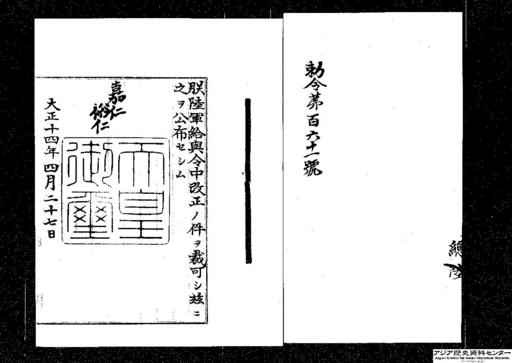 勅令第百六十一號
總
陸
朕陸軍給與令中改正ノ件ヲ裁可シ玆ニ
之ヲ公布セシム
嘉仁
裕仁
天皇
御璽
大正十四年四月二十七日
アジア歴史資料センター
Japan Center for Asian Historical Records